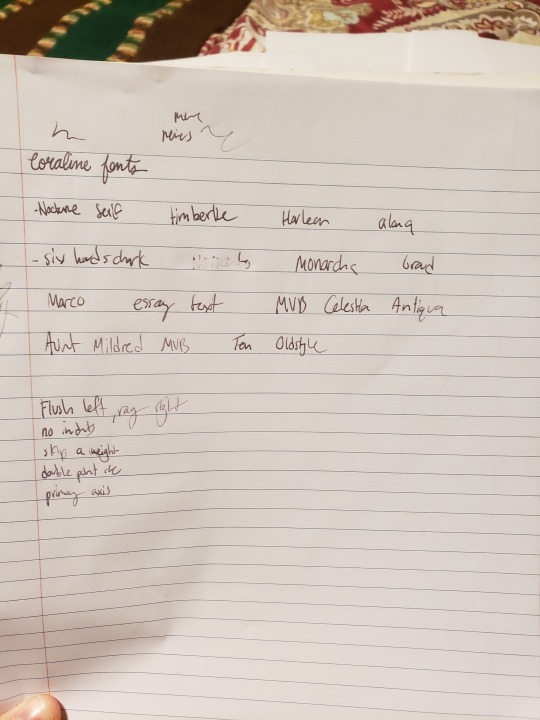 Coraline fonts
-Nocturne Serif timberlke Harlean alang
- six hands dark Monarcha Grad
Marco essay text MVB Celestia Antiqua
Aunt Mildred MVB Ten Oldstyle
Flush left, rag right
no indnts
skip a weight
double point size
primary axis